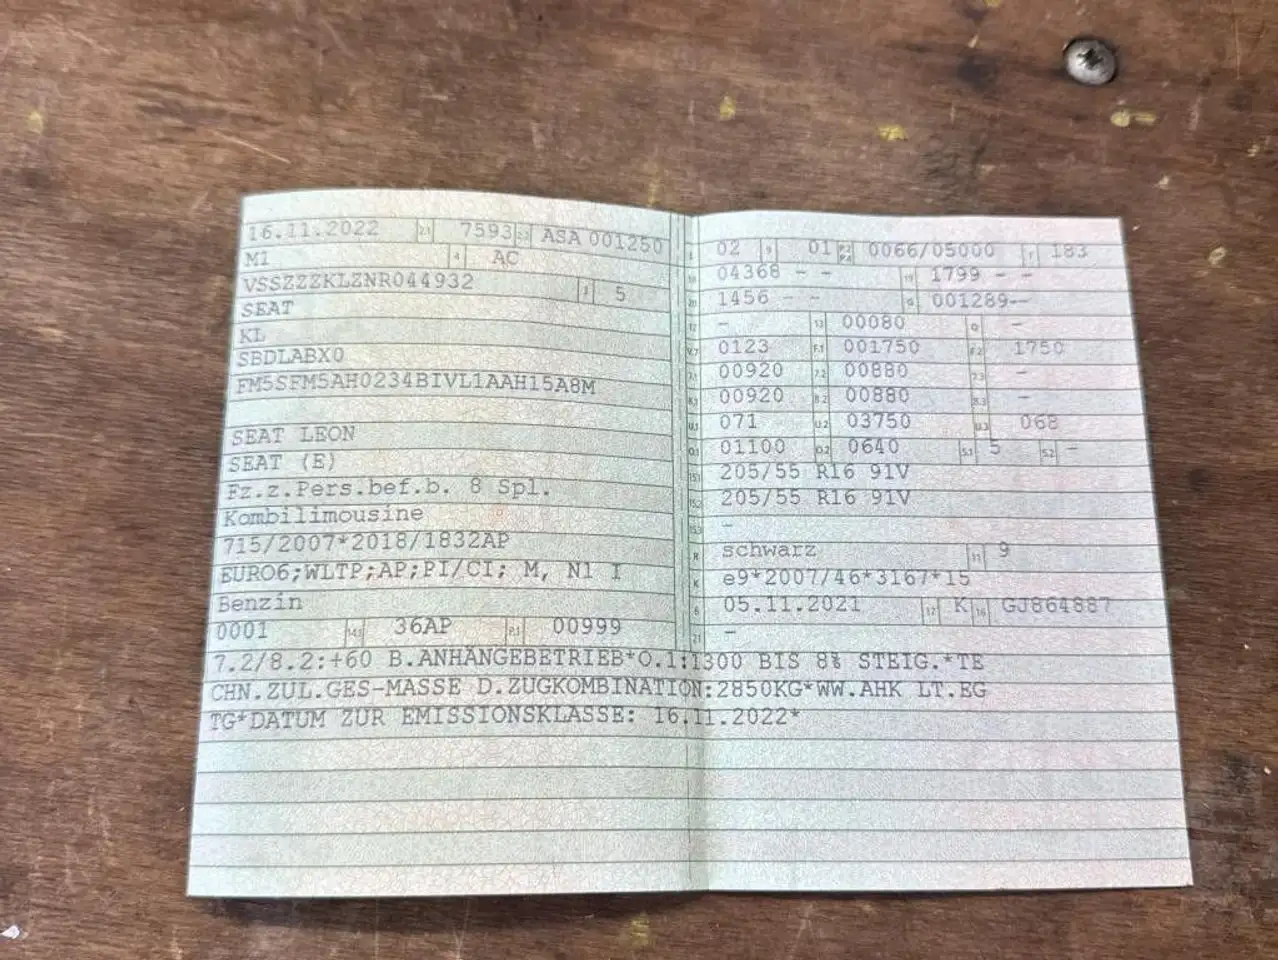 16.11.2022 2.1 7593 2.2 ASA 001250
M1 4 AC
VSSZZZKLZNR044932 3 5
SEAT
KL
SBDLABX0
FM5SFM5AH0234BIVL1AAH15A8M
SEAT LEON
SEAT (E)
Fz.z.Pers.bef.b. 8 Spl.
Kombilimousine
715/2007*2018/1832AP
EURO6;WLTP;AP;PI/CI; M, N1 I
Benzin
0001 14.1 36AP P.1 00999
L 02 9 01 P.2 P.4 0066/05000 T 183
18 04368 - - 19 1799 - -
20 1456 - - G 001289--
12 - 13 00080 Q -
V.7 0123 F.1 001750 F.2 1750
7.1 00920 7.2 00880 7.3 -
8.1 00920 8.2 00880 8.3 -
U.1 071 U.2 03750 U.3 068
O.1 01100 O.2 0640 S.1 5 S.2 -
15.1 205/55 R16 91V
15.2 205/55 R16 91V
15.3 -
R schwarz 11 9
K e9*2007/46*3167*15
6 05.11.2021 17 K 16 GJ864887
21 -
7.2/8.2:+60 B.ANHÄNGEBETRIEB*O.1:1300 BIS 8% STEIG.*TE
CHN.ZUL.GES-MASSE D.ZUGKOMBINATION:2850KG*WW.AHK LT.EG
TG*DATUM ZUR EMISSIONSKLASSE: 16.11.2022*